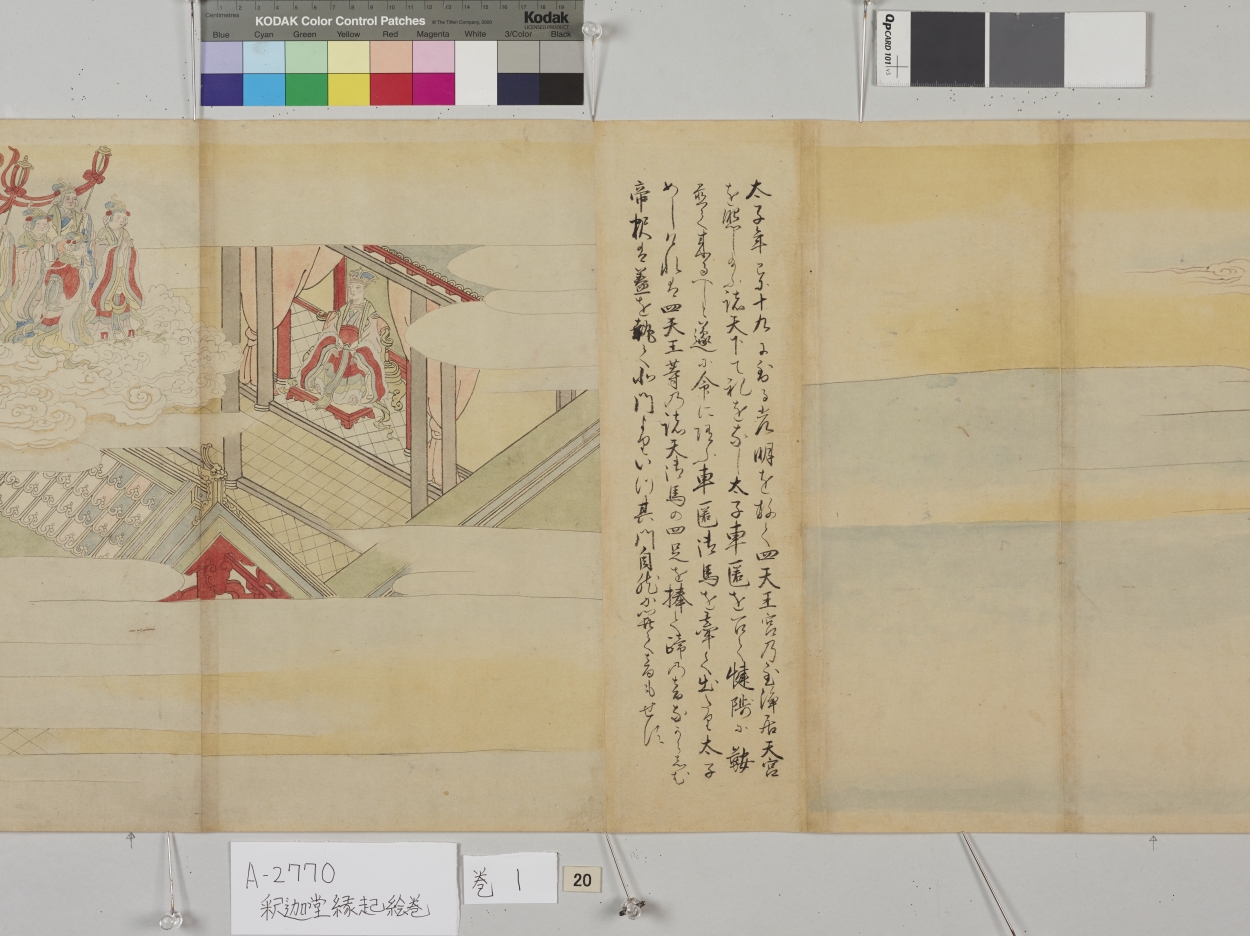 Centimetres
1 2 3 4 5 6 7 8 9 10 11 12 13 14 15 16 17 18 19
KODAK Color Control Patches
© The Tiffen Company, 2000
Kodak
LICENSED PRODUCT
Blue Cyan Green Yellow Red Magenta White 3/Color Black
QPCARD 101
太子年 十九 光明を放て四天王宮乃至浄居天宮
を照 諸天下て礼をなし太子車匿を召て揵陟に鞍
来る 遂に令に 車匿御馬を牽て出 太子
めし は四天王等の諸天御馬の四足を捧て蹄の音
帝釈は蓋を執て北門より 其門自然に開て音もせす
A-2770
釈迦堂縁起絵巻
巻 1
20